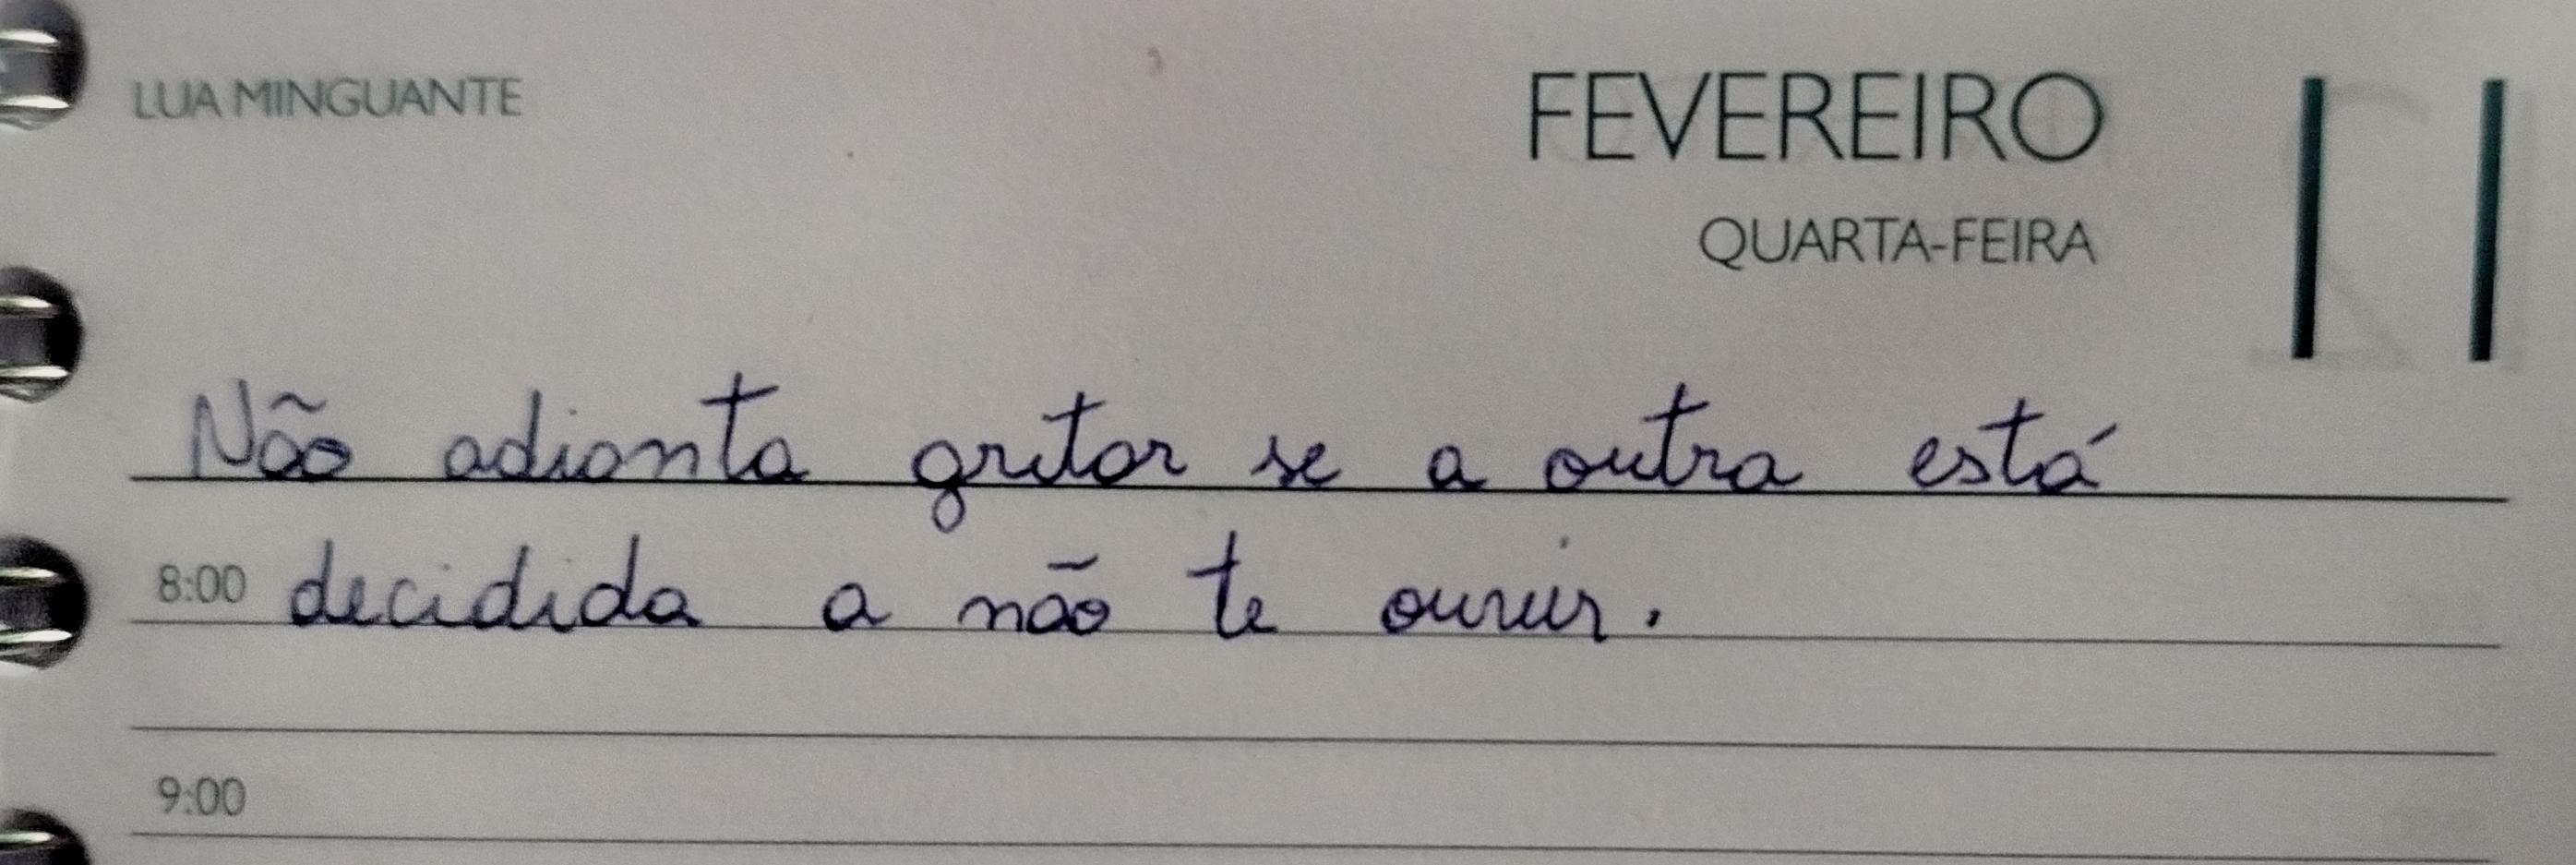 LUA MINGUANTE
FEVEREIRO 11
QUARTA-FEIRA
Não adianta gritar se a outra está
8:00 decidida a não te ouvir.
9:00